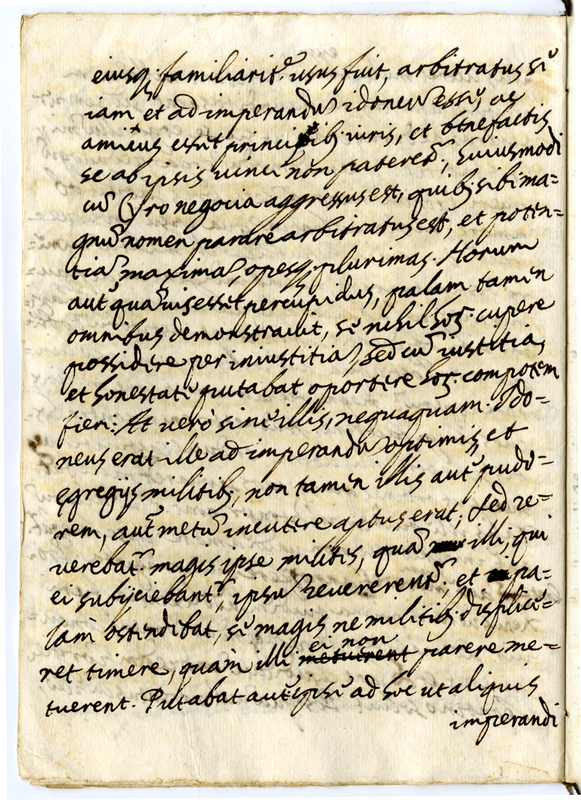 eiusq; familiarit.e usus fuit, arbitratus sē
iam et ad imperandū idoneū esse, ac
amicus esset principib; viris, et benefactis
se ab ipsis vinci non pateret.r, huiusmodi
cū Cyro negocia aggressus est, quib; sibi ma-
gnū nomen parare arbitratus est, et poten-
tiā maximā, opesq; plurimas. Horum
aut quāvis esset percupidus, palam tamen
omnibus demonstravit, sē nihil hoȝ. cupere
possidere per iniustitiā, sed cū iustitia,
et honestate putabat oportere hoȝ. compotem
fieri: At verò sine illis, nequaquam. Ido-
neus erat ille ad imperandū optimis et
egregijs militib; non tamen illis aut pudo-
rem, aut metū incutere aptus erat, sed re-
verebat.r magis ipse milites, quā illi, qui
ei subijciebant.r, ipsū revererent.r, et pa-
lam ostendebat, sē magis ne militib. displice-
ret timere, quàm illi ei non parere me-
tuerent. Putabat aut ipse ad hoc ut aliquis
imperandi